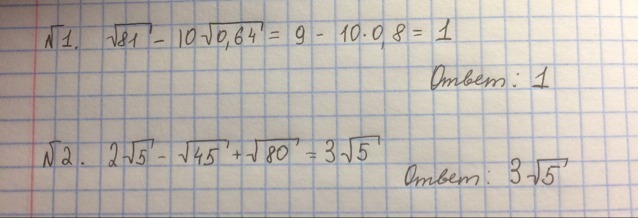 №1. √81 - 10√0,64 = 9 - 10·0,8 = 1
Ответ: 1
№2. 2√5 - √45 + √80 = 3√5
Ответ: 3√5